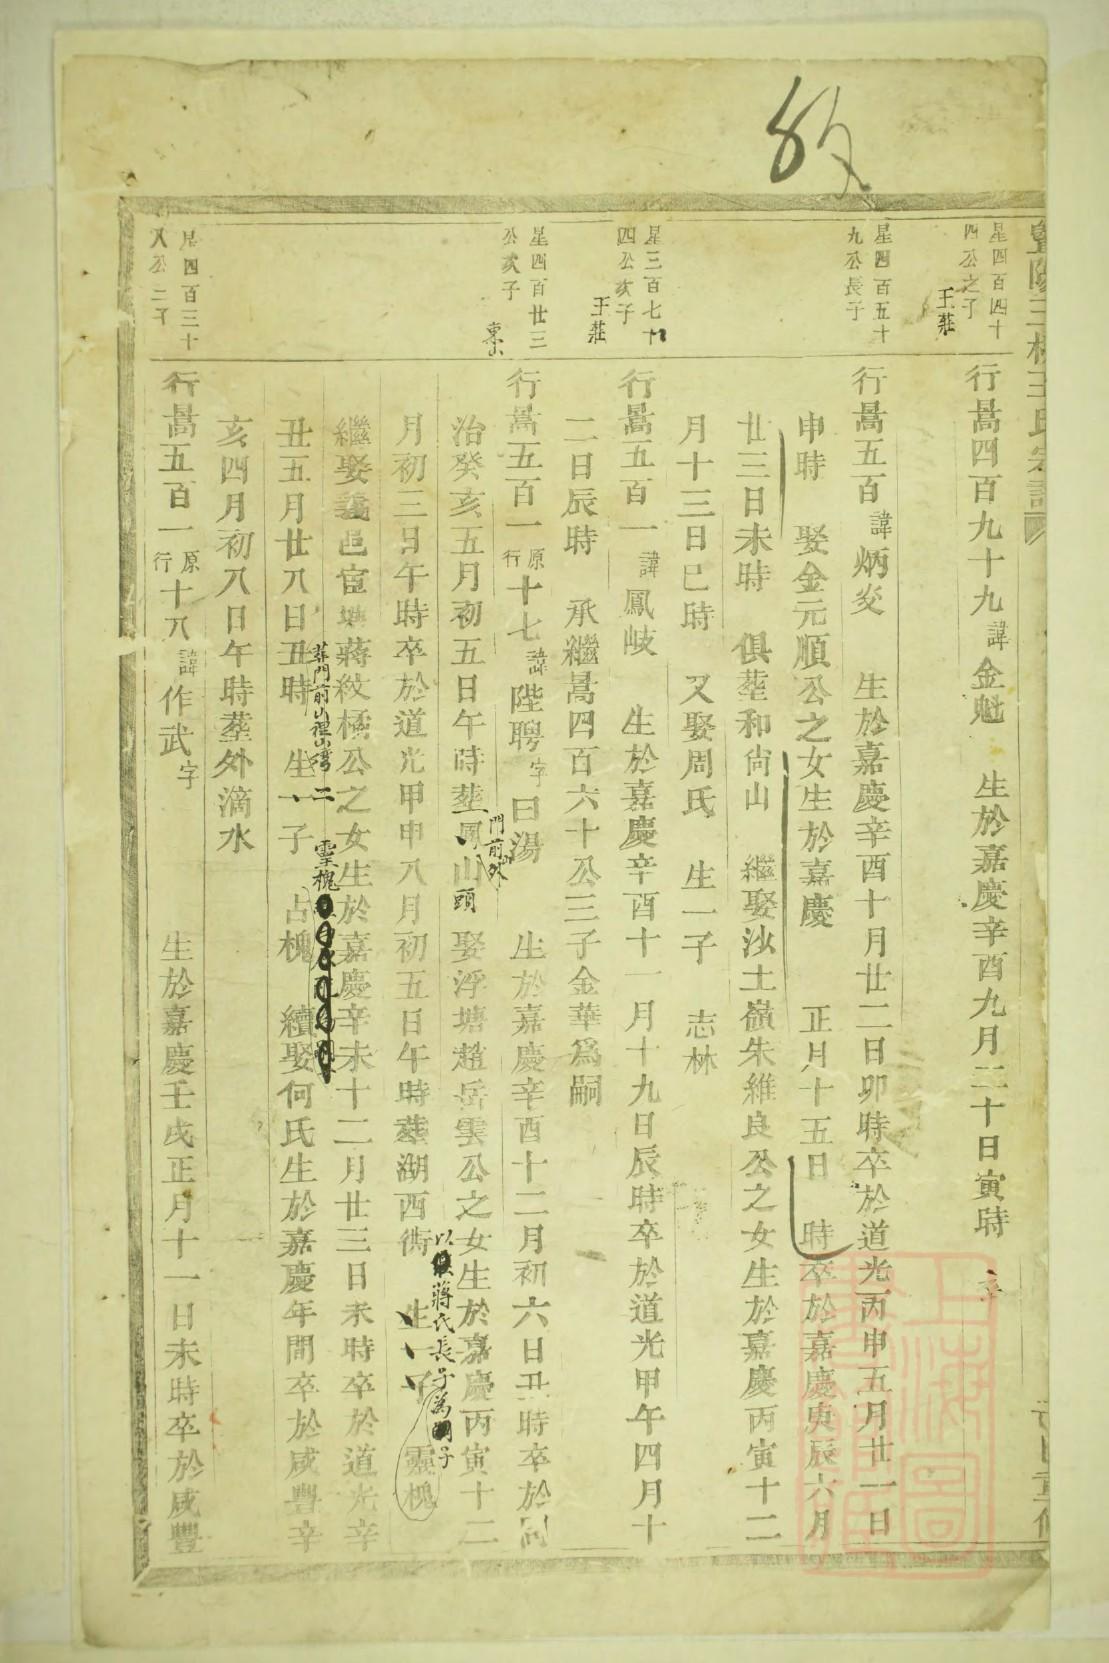 星四百四十
四公之子
王莊
行暠四百九十九諱金魁 生於嘉慶辛酉九月二十日寅時
星四百五十
九公長子
行暠五百諱炳炎 生於嘉慶辛酉十月廿二日卯時卒於道光丙申五月廿一日
申時 娶金元順公之女生於嘉慶 正月十五日 時卒於嘉慶庚辰六月
廿三日未時 俱塟和尙山 繼娶沙土嶺朱維良公之女生於嘉慶丙寅十二
月十三日巳時 又娶周氏 生一子 志林
星三百七十
四公亥子
王莊
行暠五百一諱鳳岐 生於嘉慶辛酉十一月十九日辰時卒於道光甲午四月十
二日辰時 承繼暠四百六十公三子金華爲嗣
星四百廿三
公亥子
東山
行暠五百一原行十七諱陛聘字曰湯 生於嘉慶辛酉十二月初六日丑時卒於同
治癸亥五月初五日午時塟鳳山頭 娶浮塘趙岳雲公之女生於嘉慶丙寅十二
門前外
月初三日午時卒於道光甲申八月初五日午時塟湖西衖 生一子 靈槐
以 蔣氏長子爲 子
繼娶 邑宦塘蔣紋橘公之女生於嘉慶辛未十二月廿三日未時卒於道光辛
葬門前山裡山灣 二 靈槐
丑五月廿八日丑時 生一子 占槐 續娶何氏生於嘉慶年間卒於咸豐辛
亥四月初八日午時塟外滴水
星四百三十
八公二子
行暠五百一原行十八諱作武字 生於嘉慶壬戌正月十一日未時卒於咸豐
上海圖
書館藏